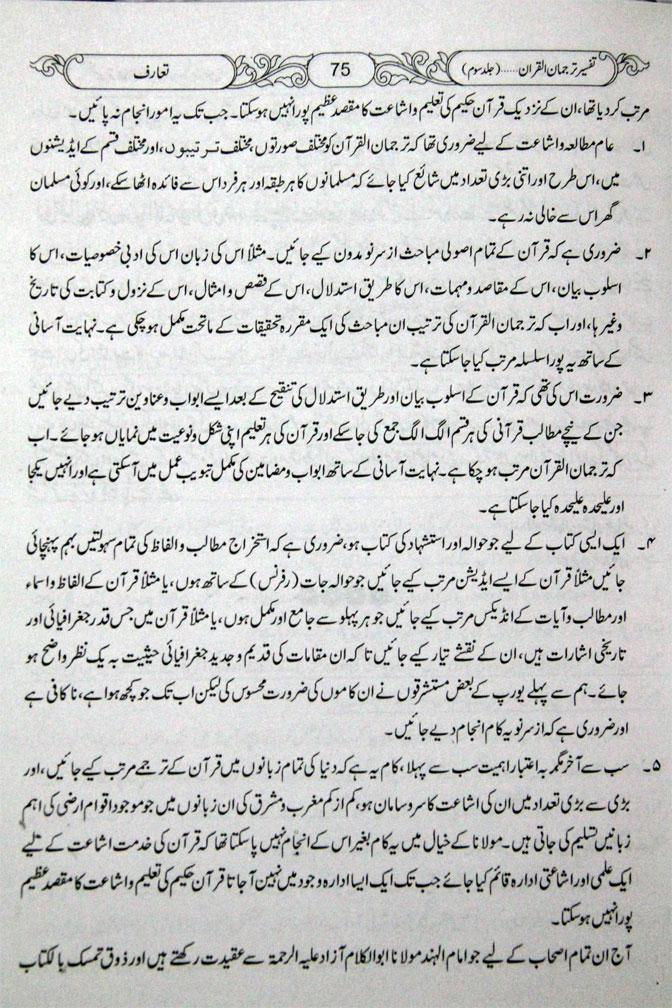 تفسیر ترجمان القرآن.....(جلد سوم)
75
تعارف
مرتب کر دیا تھا، ان کے نزدیک قرآن حکیم کی تعلیم و اشاعت کا مقصد عظیم پورا نہیں ہو سکتا۔ جب تک یہ امور انجام نہ پائیں۔
۱۔ عام مطالعہ و اشاعت کے لیے ضروری تھا کہ ترجمان القرآن کو مختلف صورتوں، مختلف ترتیبوں، اور مختلف قسم کے ایڈیشنوں
میں، اس طرح اور اتنی بڑی تعداد میں شائع کیا جائے کہ مسلمانوں کا ہر طبقہ اور ہر فرد اس سے فائدہ اٹھا سکے، اور کوئی مسلمان
گھر اس سے خالی نہ رہے۔
۲۔ ضروری ہے کہ قرآن کے تمام اصولی مباحث از سر نو مدون کیے جائیں۔ مثلاً اس کی زبان اس کی ادبی خصوصیات، اس کا
اسلوب بیان، اس کے مقاصد و مہمات، اس کا طریق استدلال، اس کے قصص و امثال، اس کے نزول و کتابت کی تاریخ
وغیرہا، اور اب کہ ترجمان القرآن کی ترتیب ان مباحث کی ایک مقررہ تحقیقات کے ماتحت مکمل ہو چکی ہے۔ نہایت آسانی
کے ساتھ یہ پورا سلسلہ مرتب کیا جا سکتا ہے۔
۳۔ ضرورت اس کی تھی کہ قرآن کے اسلوب بیان اور طریق استدلال کی تنقیح کے بعد ایسے ابواب و عناوین ترتیب دیے جائیں
جن کے نیچے مطالب قرآنی کی ہر قسم الگ الگ جمع کی جا سکے اور قرآن کی ہر تعلیم اپنی شکل و نوعیت میں نمایاں ہو جائے۔ اب
کہ ترجمان القرآن مرتب ہو چکا ہے۔ نہایت آسانی کے ساتھ ابواب و مضامین کی مکمل تبویب عمل میں آ سکتی ہے اور انہیں یکجا
اور علیحدہ علیحدہ کیا جا سکتا ہے۔
۴۔ ایک ایسی کتاب کے لیے جو حوالہ اور استشہاد کی کتاب ہو، ضروری ہے کہ استخراج مطالب و الفاظ کی تمام سہولتیں بہم پہنچائی
جائیں مثلاً قرآن کے ایسے ایڈیشن مرتب کیے جائیں جو حوالہ جات (رفرنس) کے ساتھ ہوں، یا مثلاً قرآن کے الفاظ و اسماء
اور مطالب و آیات کے انڈیکس مرتب کیے جائیں جو ہر پہلو سے جامع اور مکمل ہوں، یا مثلاً قرآن میں جس قدر جغرافیائی اور
تاریخی اشارات ہیں، ان کے نقشے تیار کیے جائیں تا کہ ان مقامات کی قدیم و جدید جغرافیائی حیثیت بہ یک نظر واضح ہو
جائے۔ ہم سے پہلے یورپ کے بعض مستشرقوں نے ان کاموں کی ضرورت محسوس کی لیکن اب تک جو کچھ ہوا ہے، ناکافی ہے
اور ضروری ہے کہ از سر نو یہ کام انجام دیے جائیں۔
۵۔ سب سے آخر مگر بہ اعتبار اہمیت سب سے پہلا، کام یہ ہے کہ دنیا کی تمام زبانوں میں قرآن کے ترجمے مرتب کیے جائیں، اور
بڑی سے بڑی تعداد میں ان کی اشاعت کا سر و سامان ہو، کم از کم مغرب و مشرق کی ان زبانوں میں جو موجود اقوام ارضی کی اہم
زبانیں تسلیم کی جاتی ہیں۔ مولانا کے خیال میں یہ کام بغیر اس کے انجام نہیں پا سکتا تھا کہ قرآن کی خدمت اشاعت کے لیے
ایک علمی اور اشاعتی ادارہ قائم کیا جائے جب تک ایک ایسا ادارہ وجود میں نہیں آ جاتا قرآن حکیم کی تعلیم و اشاعت کا مقصد عظیم
پورا نہیں ہو سکتا۔
آج ان تمام اصحاب کے لیے جو امام الہند مولانا ابو الکلام آزاد علیہ الرحمۃ سے عقیدت رکھتے ہیں اور ذوق تمسک بالکتاب